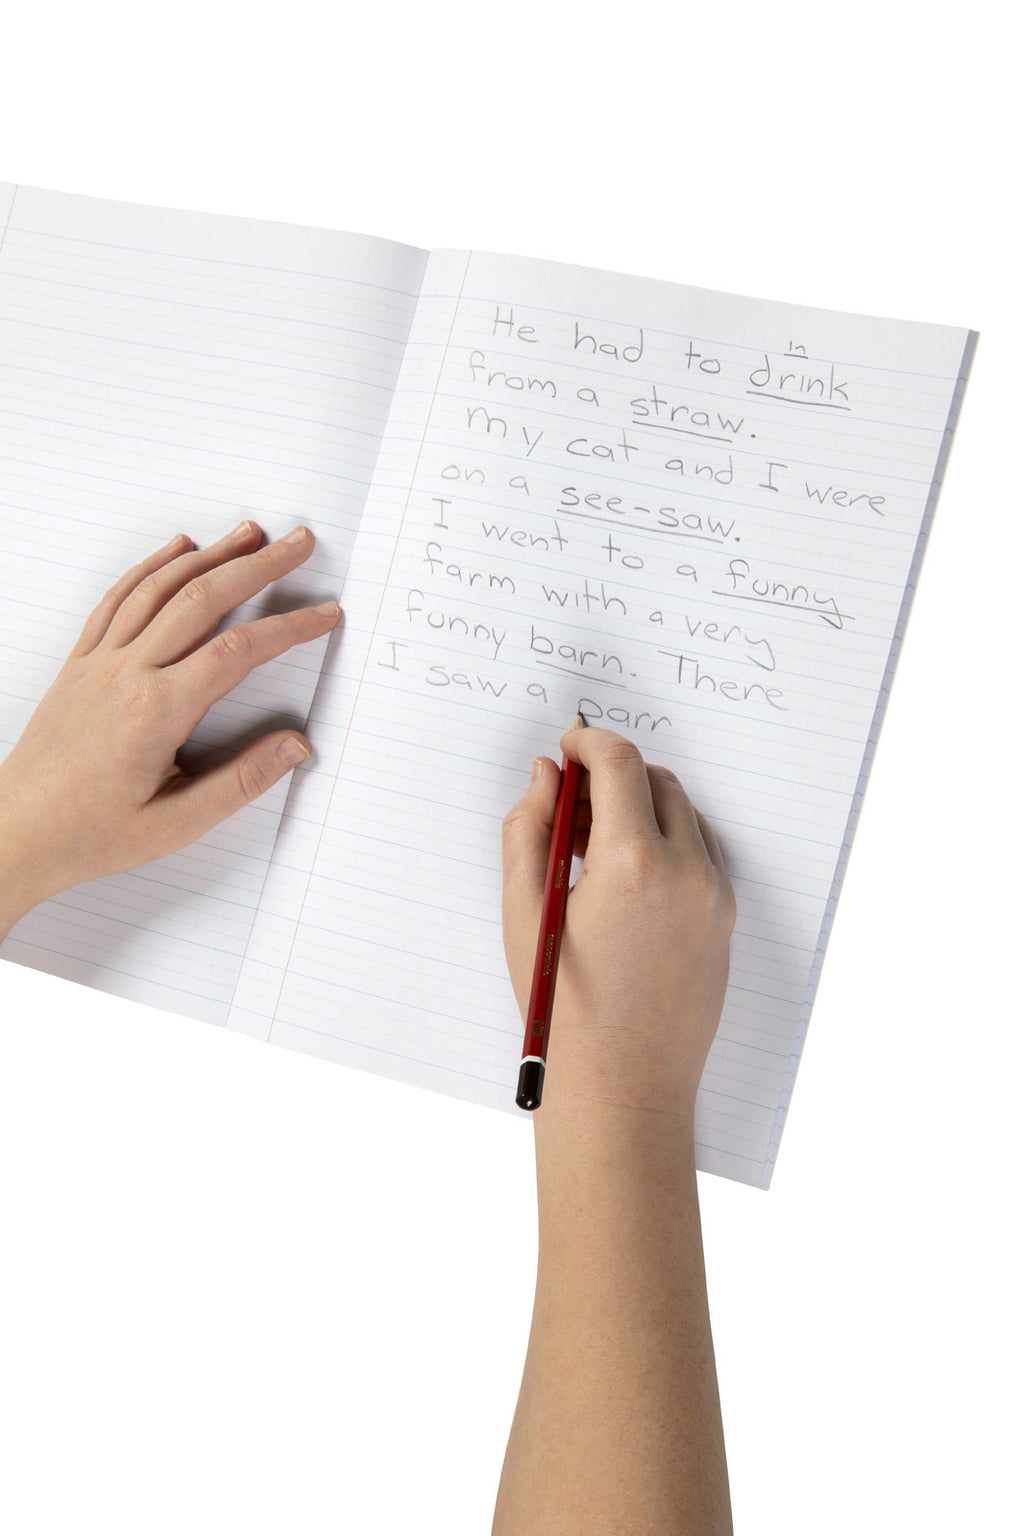 in
He had to drink
from a straw.
My cat and I were
on a see-saw.
I went to a funny
farm with a very
funny barn. There
I saw a parr